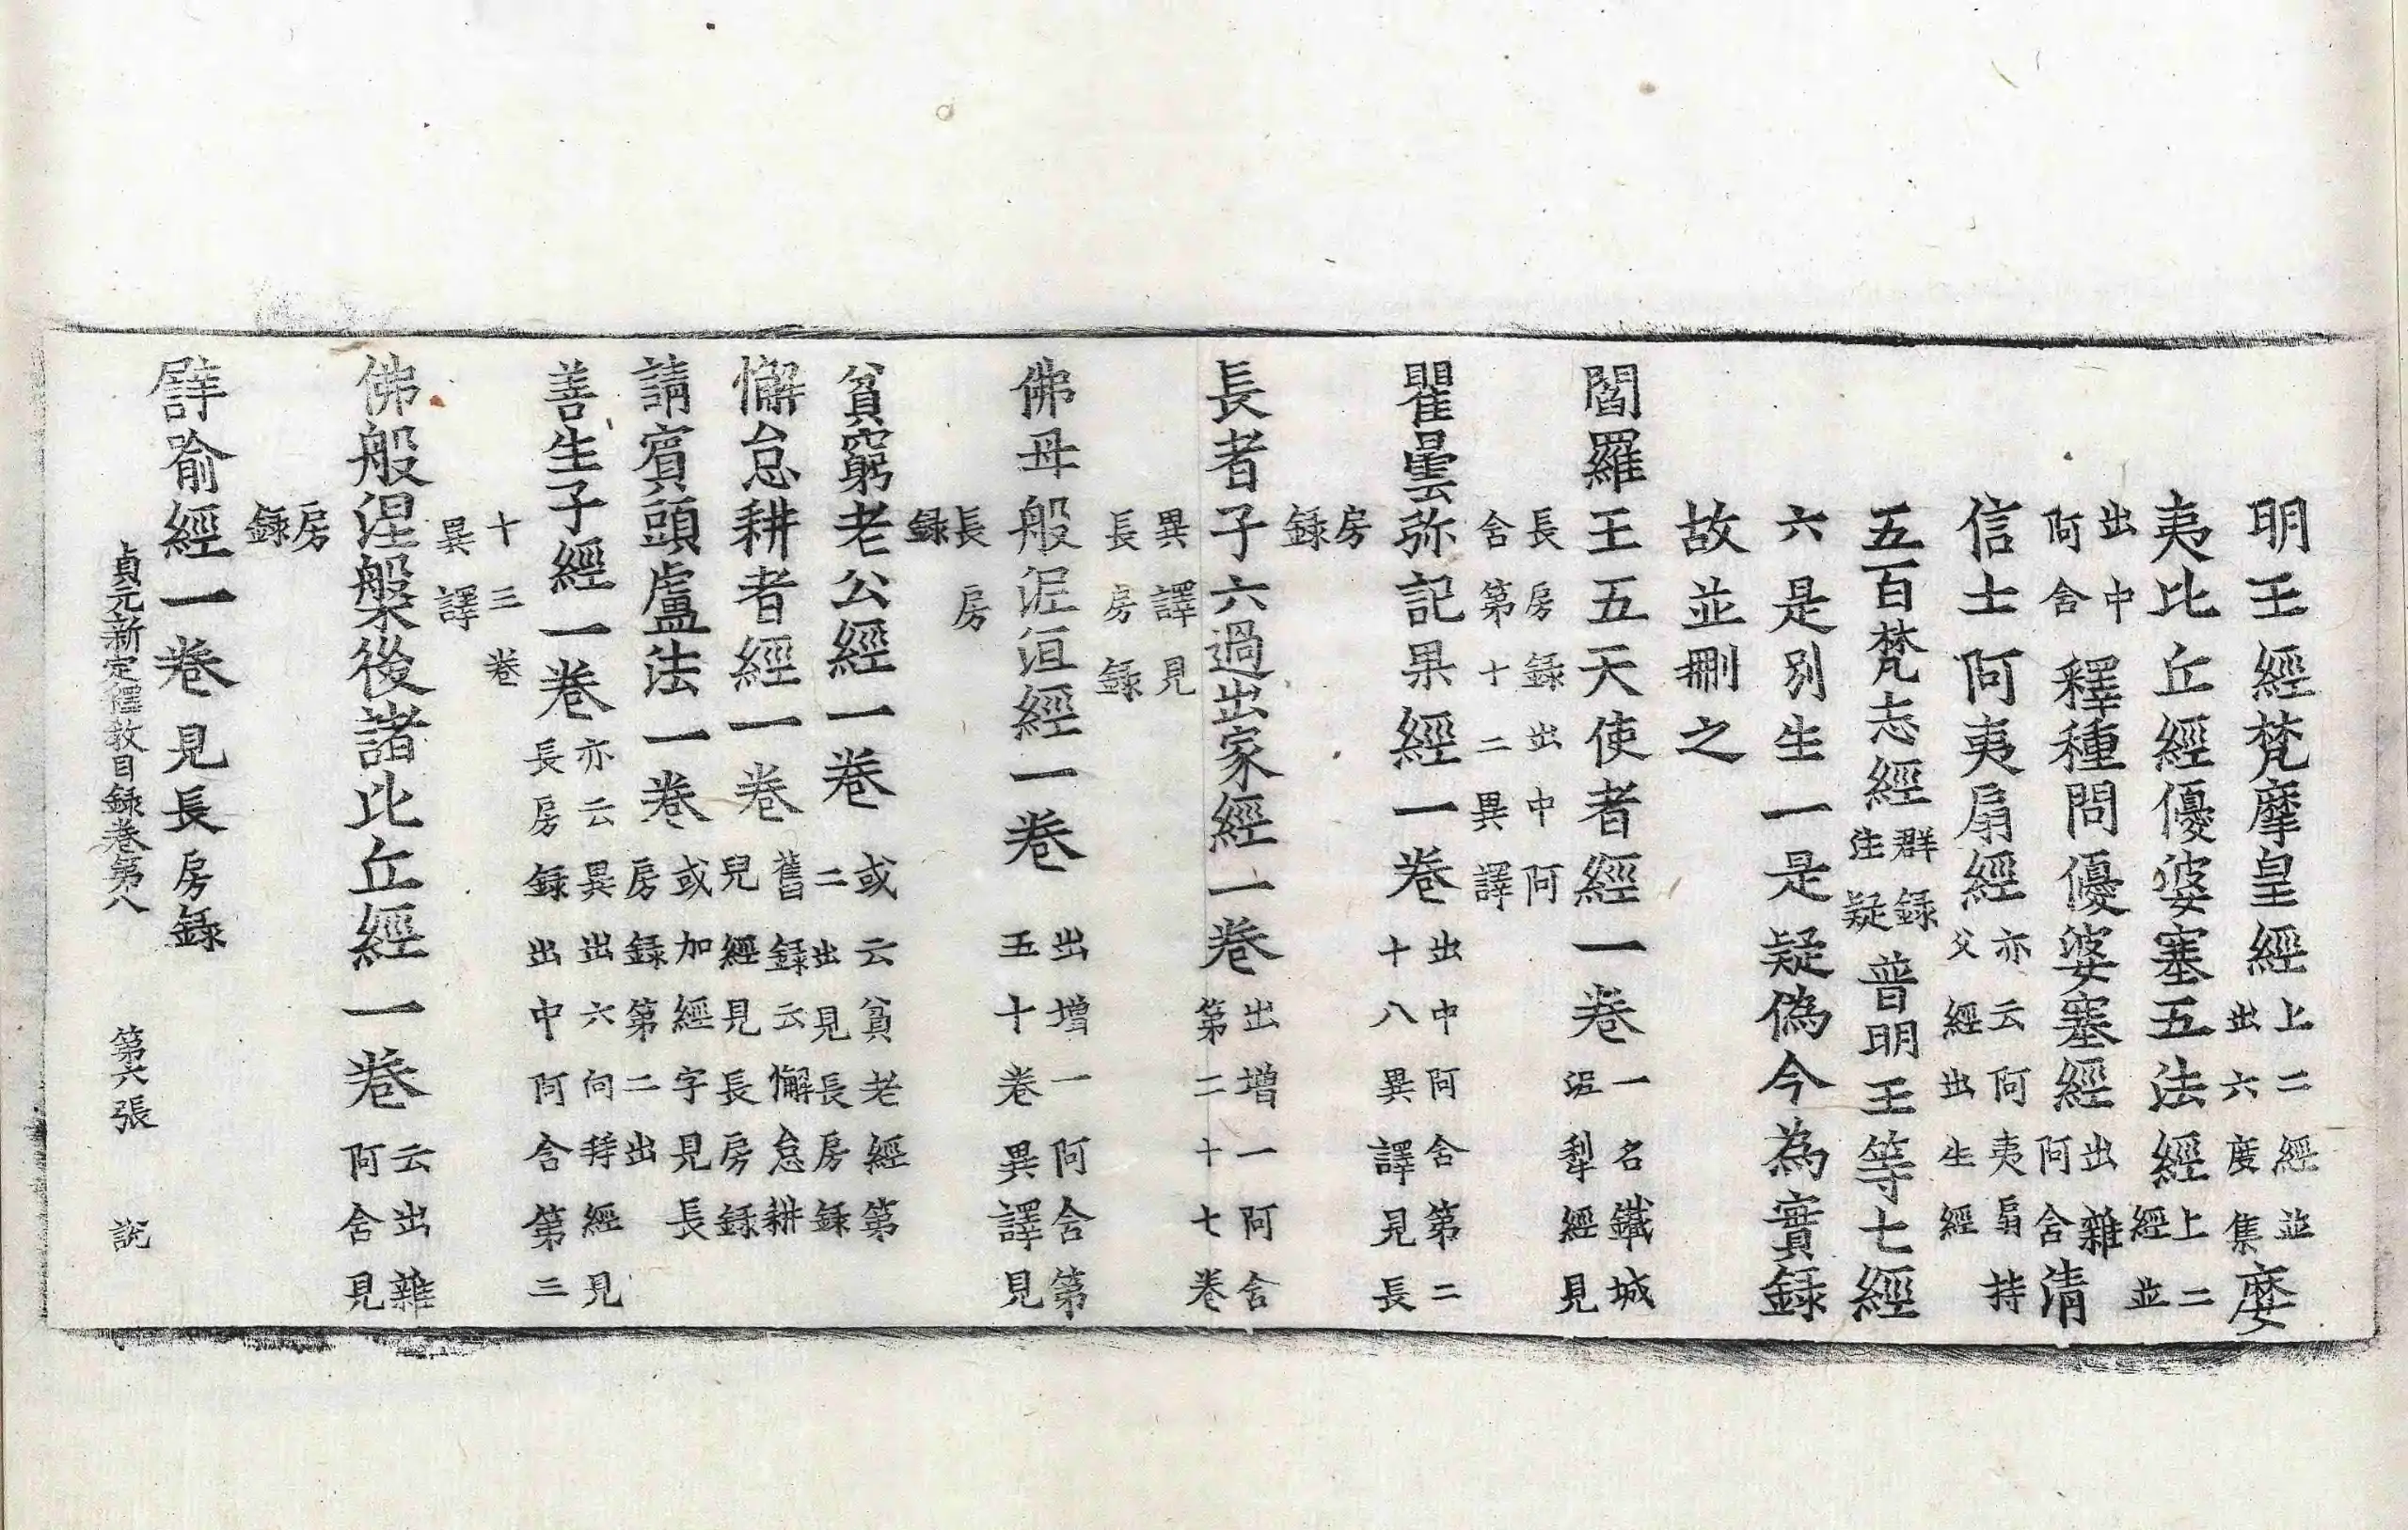 明王經梵摩皇經上二經並出六度集麼
夷比丘經優婆塞五法經上二經並
出中阿舍釋種問優婆塞經出雜阿舍清
信士阿夷扇經亦云阿夷扇持父經出生經
五百梵志經群録注疑普明王等七經
六是別生一是疑偽今為實録
故並刪之
閻羅王五天使者經一卷一名鐵城泥犁經見
長房録出中阿舍第十二異譯
瞿曇弥記果經一卷出中阿舍第二十八異譯見長
房録
長者子六過出家經一卷出增一阿舍第二十七卷
異譯見長房録
佛母般泥洹經一卷出增一阿舍第五十卷異譯見
長房録
貧窮老公經一卷或云貧老經第二出見長房録
懈怠耕者經一卷舊録云懈怠耕兒經見長房録
請賓頭盧法一卷或加經字見長房録第二出
善生子經一卷亦云異出六向拜經見長房録出中阿舍第三
十三卷異譯
佛般涅槃後諸比丘經一卷云出雜阿舍見
房録
譬喻經一卷見長房録
貞元新定釋教目録卷第八 第六張 說